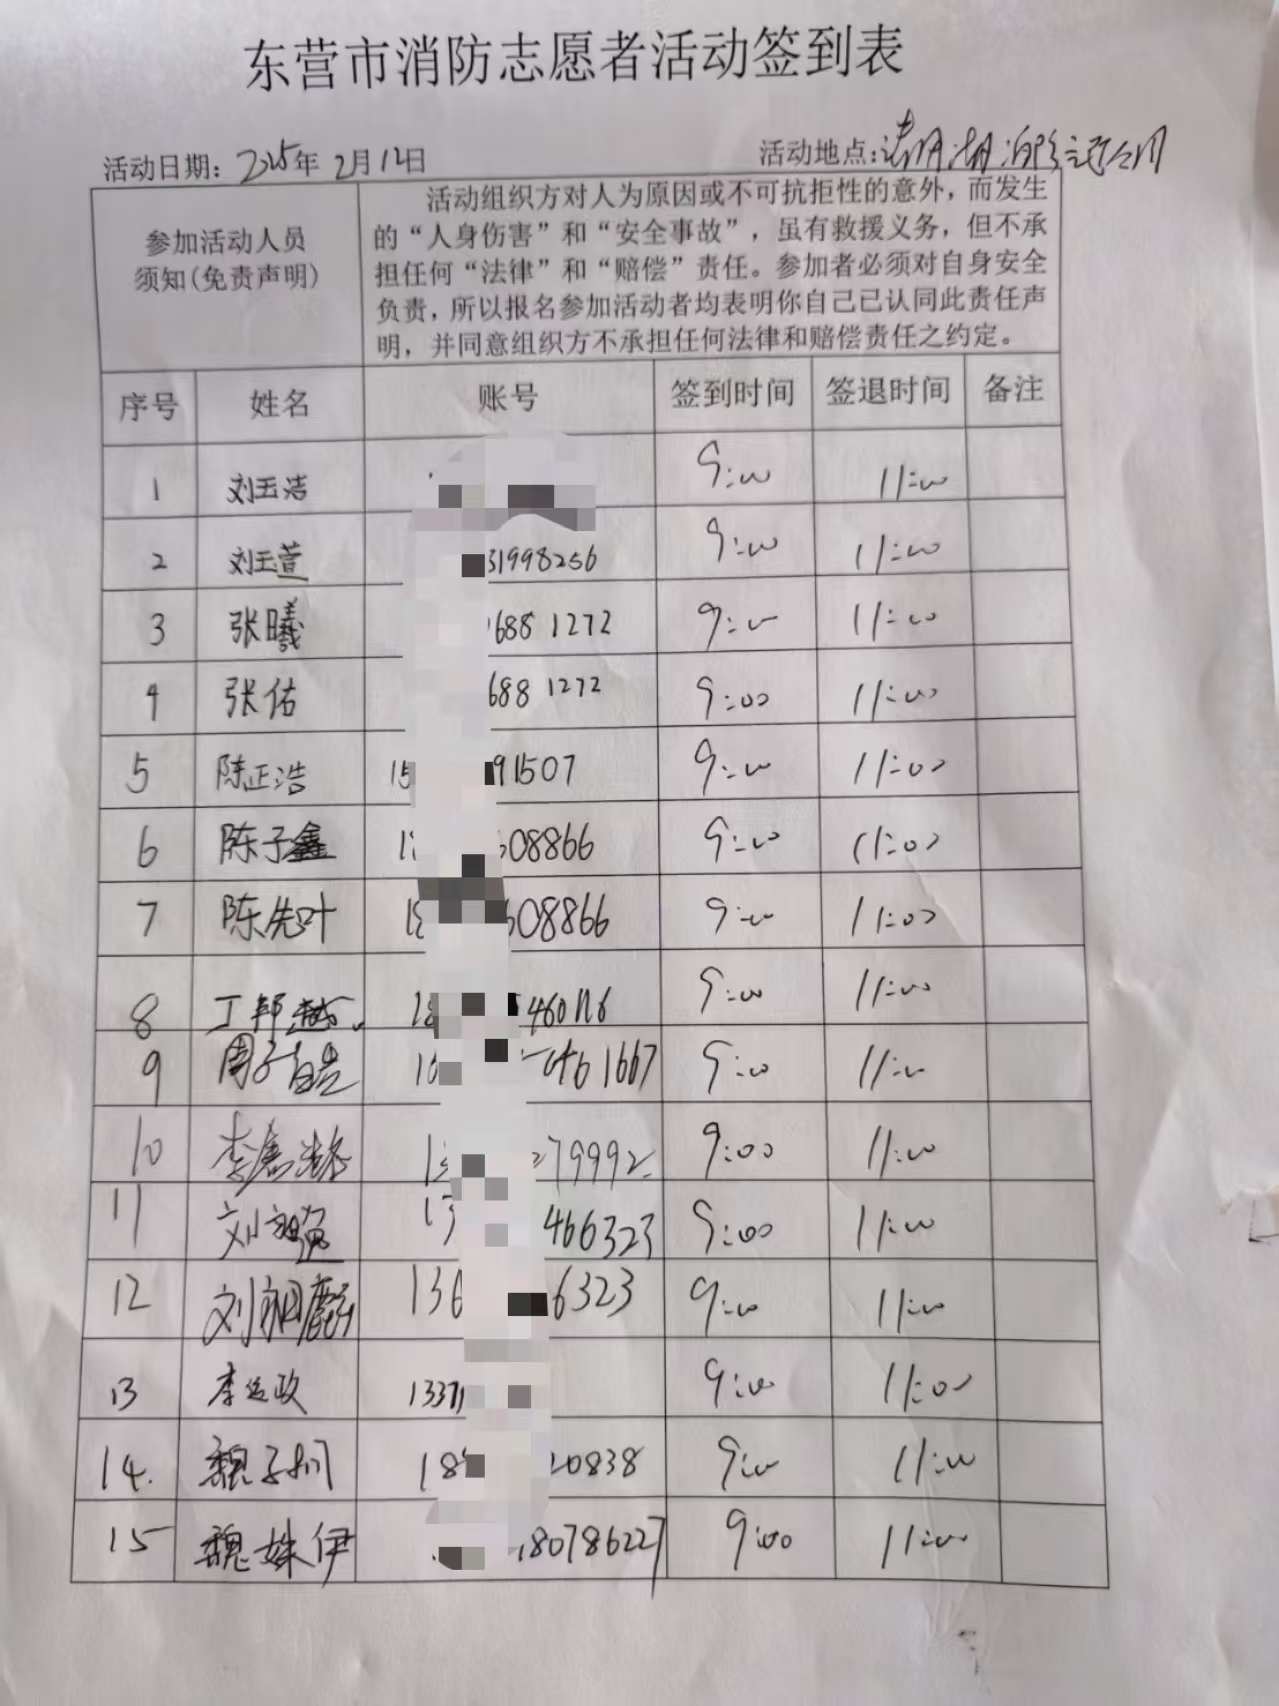 东营市消防志愿者活动签到表
活动日期：2025年2月12日 活动地点：清风湖消防
参加活动人员
须知(免责声明)
活动组织方对人为原因或不可抗拒性的意外，而发生
的“人身伤害”和“安全事故”，虽有救援义务，但不承
担任何“法律”和“赔偿”责任。参加者必须对自身安全
负责，所以报名参加活动者均表明你自己已认同此责任声
明，并同意组织方不承担任何法律和赔偿责任之约定。
序号 姓名 账号 签到时间 签退时间 备注
1 刘玉洁 9:00 11:00
2 刘玉萱 31998256 9:00 11:00
3 张曦 1688 1272 9:00 11:00
4 张佑 688 1272 9:00 11:00
5 陈正浩 15 91507 9:00 11:00
6 陈子鑫 1 08866 9:00 11:00
7 陈先叶 18 608866 9:00 11:00
8 丁邦越 18 460116 9:00 11:00
9 周子皓 461667 9:00 11:00
10 李 279992 9:00 11:00
11 刘 17 466323 9:00 11:00
12 刘 136 6323 9:00 11:00
13 李运政 1337 9:00 11:00
14. 魏子 18 20838 9:00 11:00
15 魏姝伊 180786227 9:00 11:00